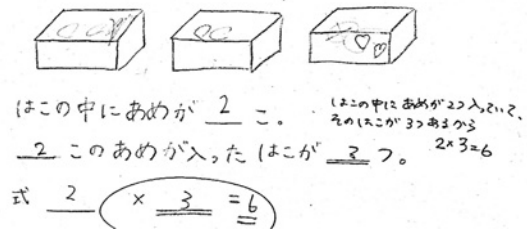 はこの中にあめが 2 こ。
はこの中にあめが2つ入っていて、
そのはこが3つあるから
2×3=6
2 このあめが入ったはこが 3 つ。
式 2 × 3 = 6